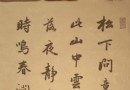 松下問童
此山中雲
落夜靜春
時鳴春澗